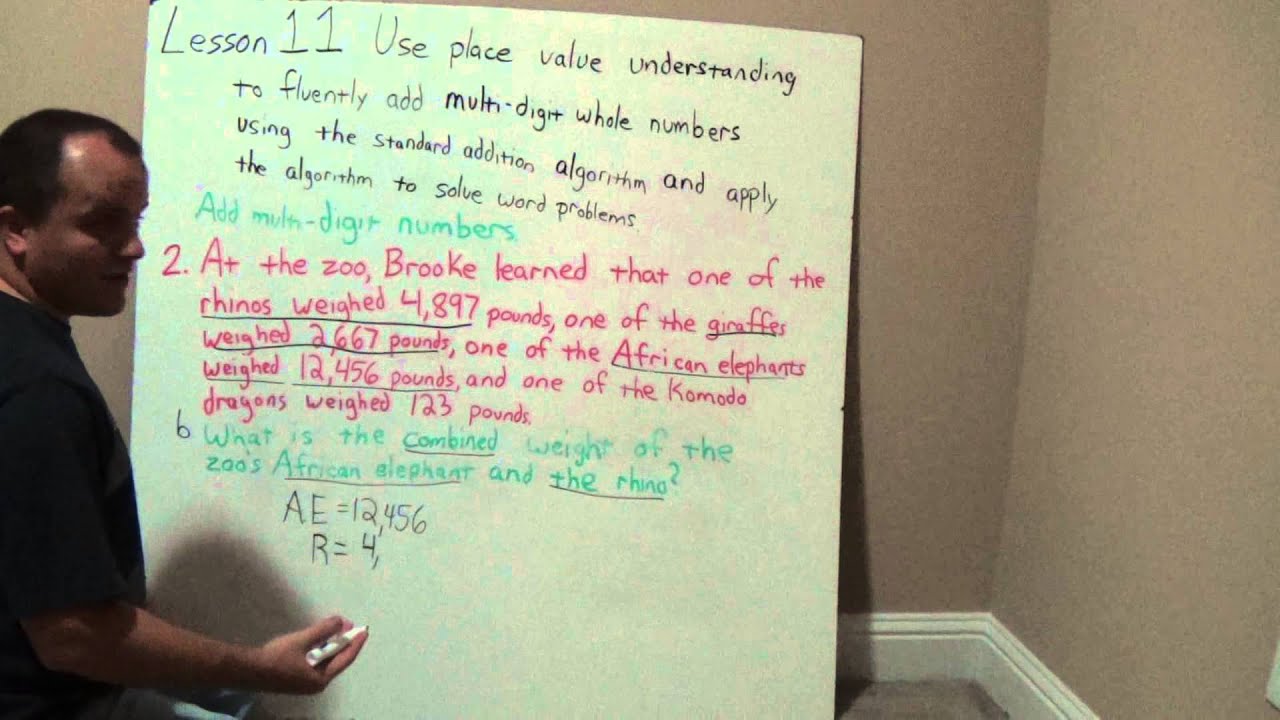 Lesson 11 Use place value understanding
to fluently add multi-digit whole numbers
using the standard addition algorithm and apply
the algorithm to solve word problems.
Add multi-digit numbers.
2. At the zoo, Brooke learned that one of the
rhinos weighed 4,897 pounds, one of the giraffes
weighed 2,667 pounds, one of the African elephants
weighed 12,456 pounds, and one of the Komodo
dragons weighed 123 pounds.
b What is the combined weight of the
zoo's African elephant and the rhino?
AE = 12,456
R = 4,